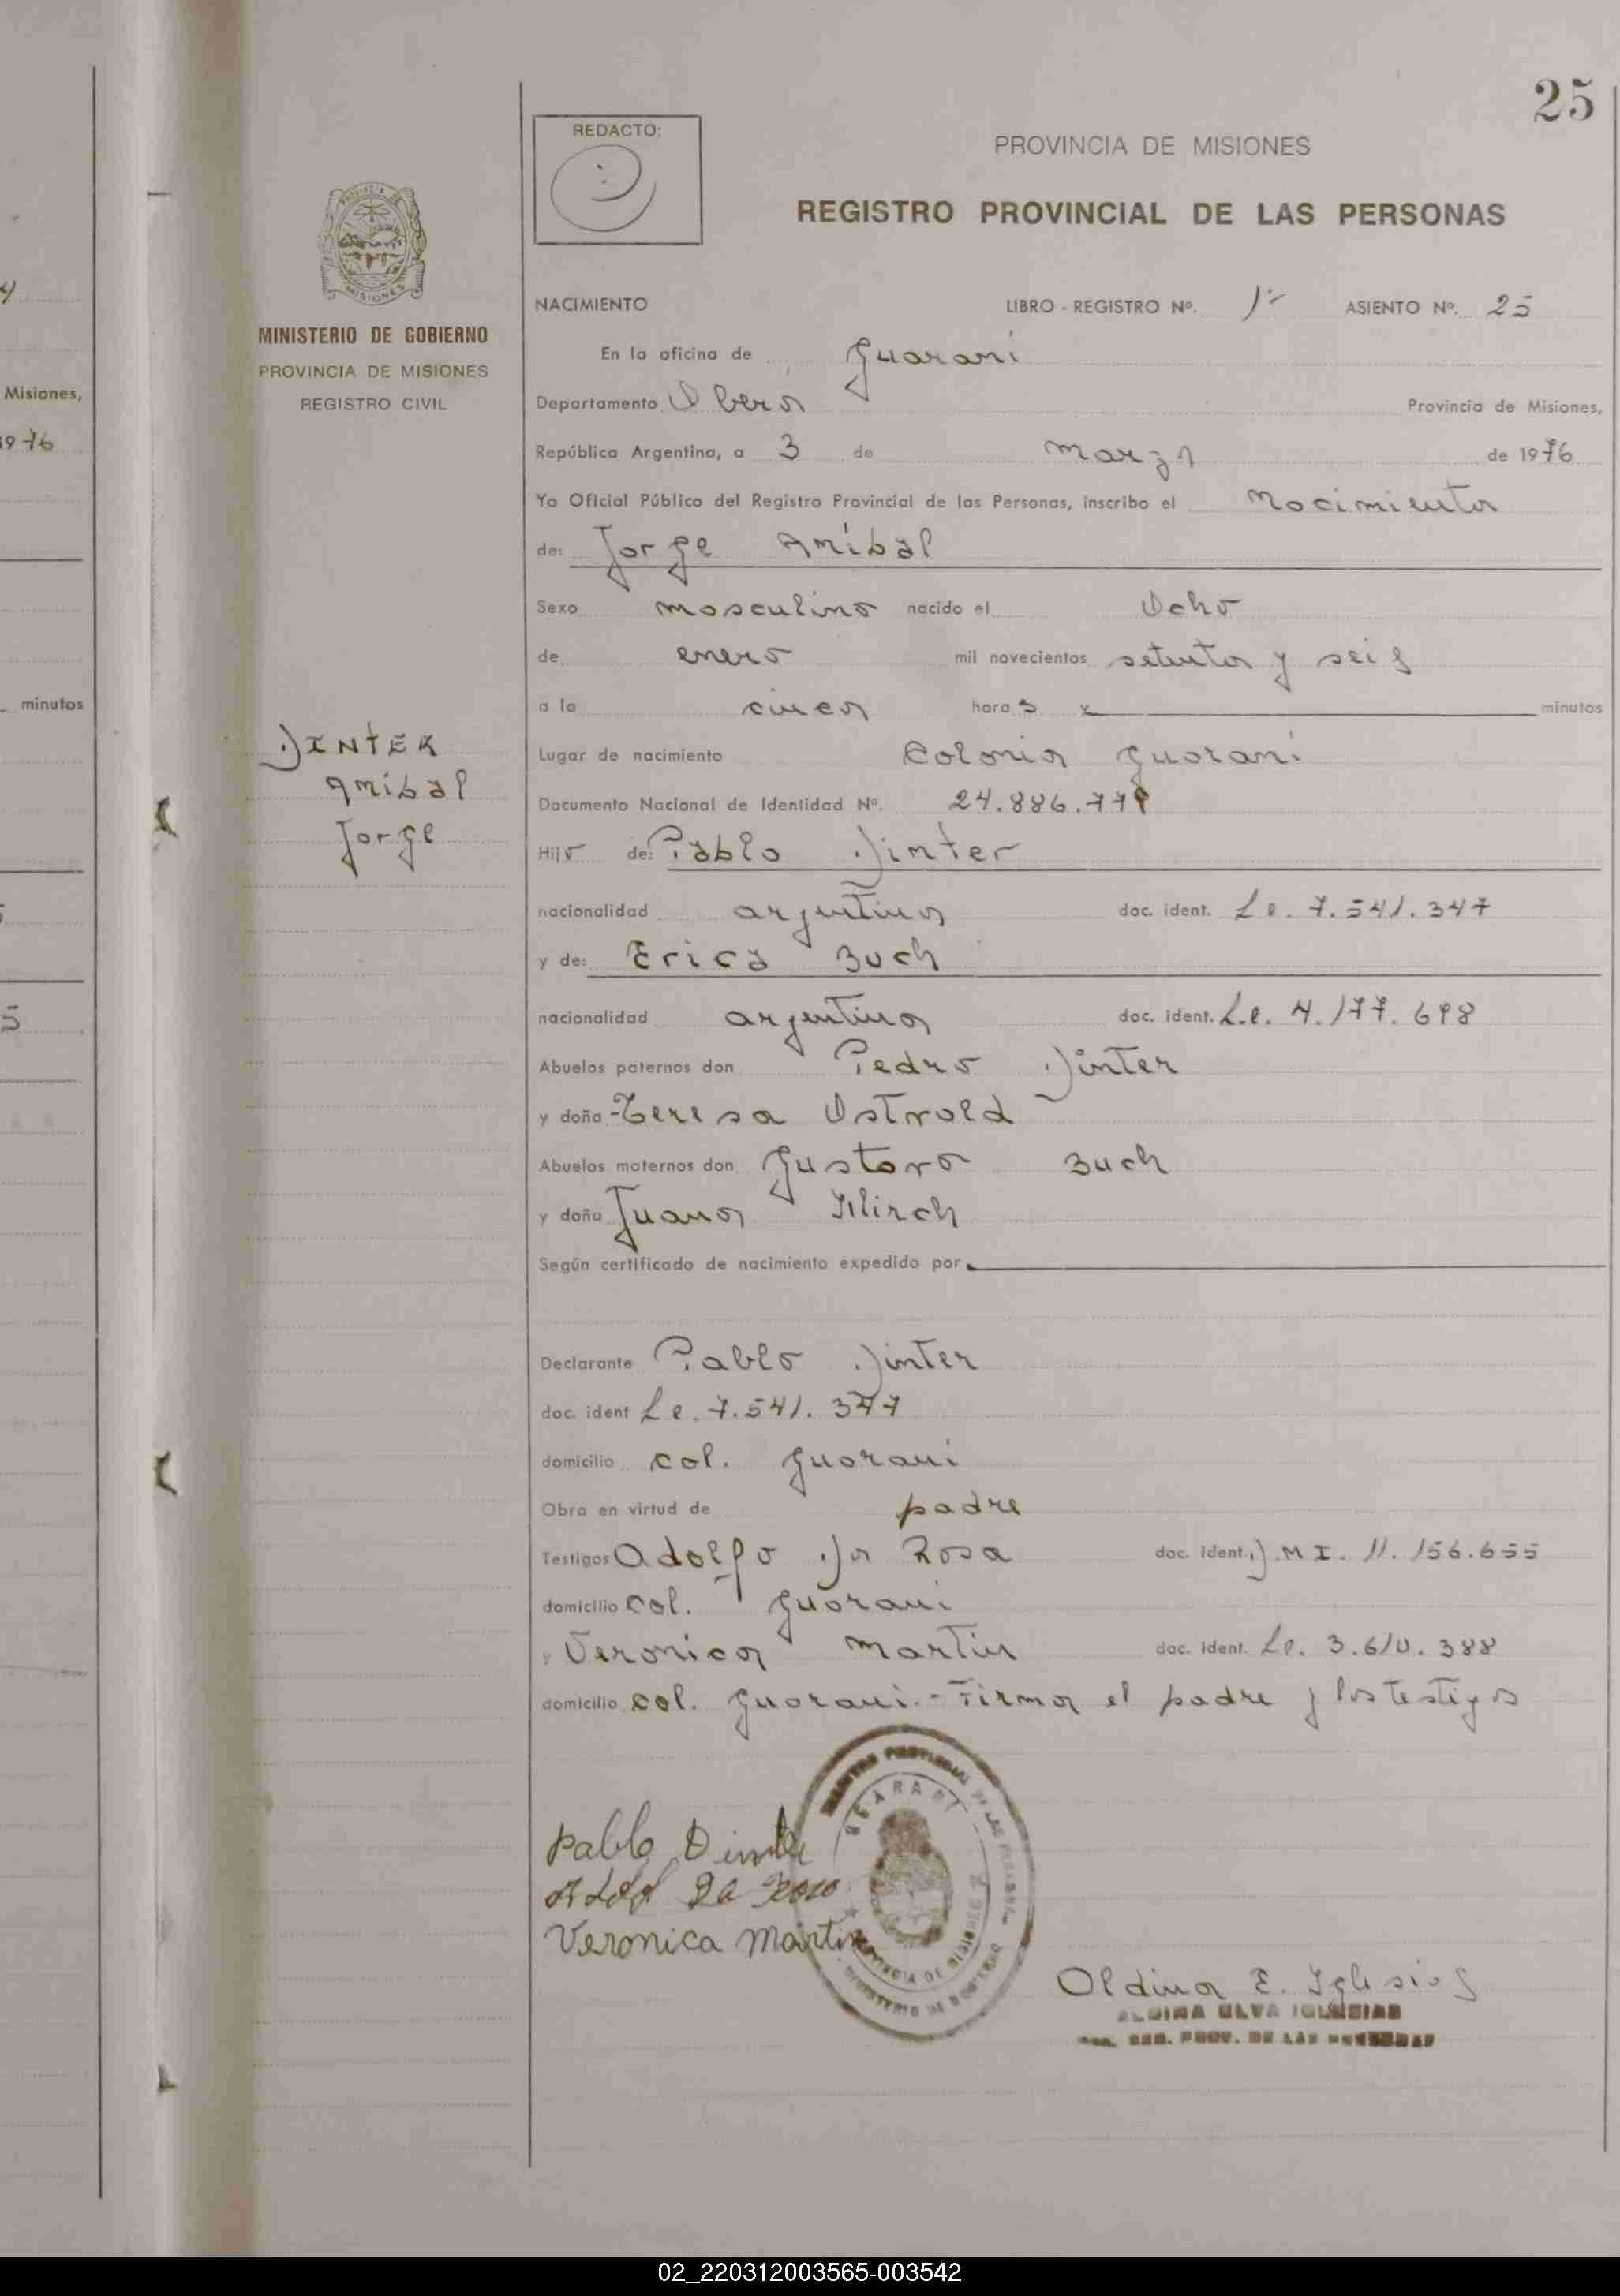 25
REDACTO:
PROVINCIA DE MISIONES
REGISTRO PROVINCIAL DE LAS PERSONAS
MINISTERIO DE GOBIERNO
PROVINCIA DE MISIONES
REGISTRO CIVIL
Misiones,
1976
minutos
NACIMIENTO LIBRO - REGISTRO Nº. 1º ASIENTO Nº. 25
En la oficina de Guaraní
Departamento Oberá Provincia de Misiones,
República Argentina, a 3 de marzo de 1976
Yo Oficial Público del Registro Provincial de las Personas, inscribo el Nacimiento
de: Jorge Aníbal
Sexo masculino nacido el Ocho
de enero mil novecientos setenta y seis
a la cinco horas x minutos
DINTER
Aníbal
Jorge
Lugar de nacimiento Colonia Guaraní
Documento Nacional de Identidad Nº. 24.886.779
Hijo de: Pablo Dinter
nacionalidad argentina doc. ident. L.e. 7.541.347
y de: Erica Buch
nacionalidad argentina doc. ident. L.e. 4.177.698
Abuelos paternos don Pedro Dinter
y doña Teresa
Abuelos maternos don Gustavo Buch
y doña Juana
Según certificado de nacimiento expedido por
Declarante Pablo Dinter
doc. ident L e. 7.541.347
domicilio col. Guaraní
Obra en virtud de padre
Testigos Adolfo Da Rosa doc. Ident. D.M I. 11.156.655
domicilio col. Guaraní
y Veronica Martin doc. Ident. L.e. 3.610.388
domicilio col. Guaraní.- Firma el padre y los testigos
Pablo Dinter
Da Rosa
Veronica Martin
GUARANI
PROVINCIA DE MISIONES
MINISTERIO DE GOBIERNO
Aldina E. Iglesias
ALDINA ELVA IGLESIAS
REG. PROV. DE LAS PERSONAS
02_220312003565-003542